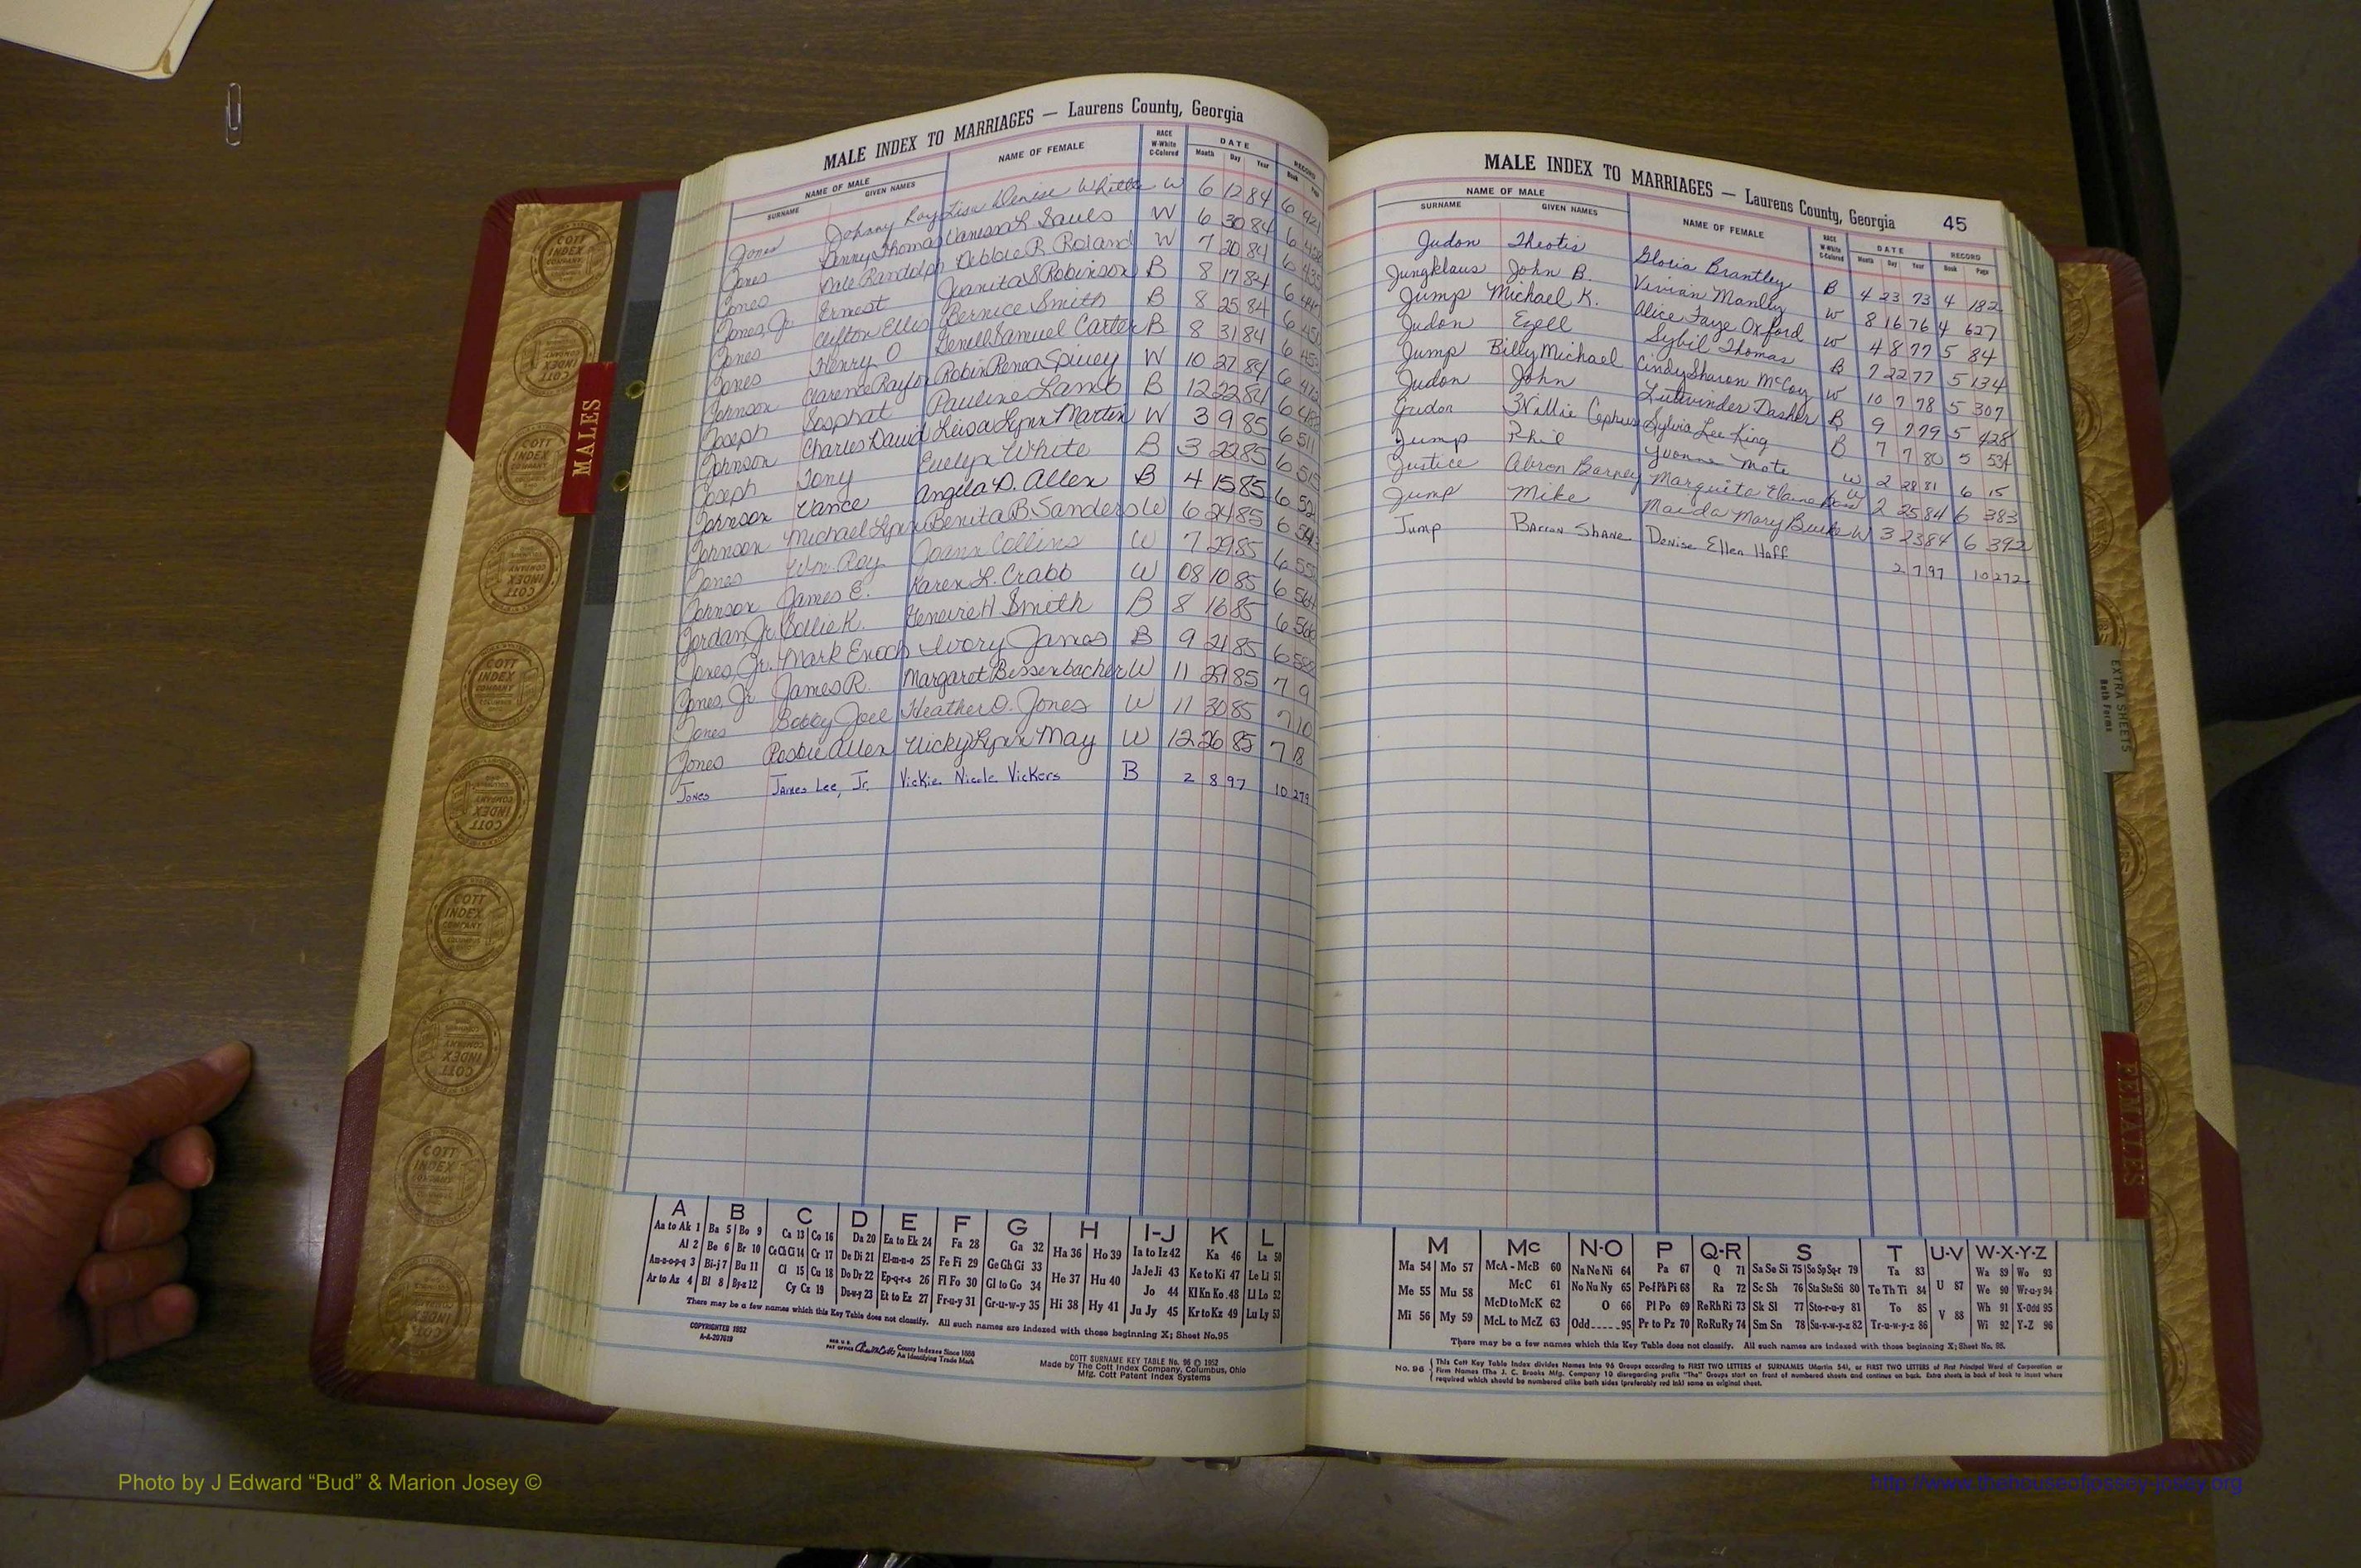 MALE INDEX TO MARRIAGES — Laurens County, Georgia
NAME OF MALE NAME OF FEMALE RACE W-White C-Colored DATE RECORD
SURNAME GIVEN NAMES Month Day Year Book Page
Jones Johnny Ray Lisa Denise W 6 12 84 6
Jones Vanessa L Sauls W 6 30 84 6
Jones Dale Randolph Debbie R. Roland W 7 20 84 6
Jones, Jr. Ernest Juanita S Robinson B 8 17 84 6
Jones Clifton Ellis Bernice Smith B 8 25 84 6
Jones Henry O Samuel Carter B 8 31 84 6
Johnson Clarence Robin Renea Spivey W 10 27 84 6
Joseph Pauline Lamb B 12 22 84 6
Johnson Charles David Leisa Lynn Martin W 3 9 85 6 511
Joseph Tony Evelyn White B 3 22 85 6
Johnson Vance Angela D. Allen B 4 15 85 6
Johnson Michael Lynn Benita B Sanders W 6 24 85 6
Jones Wm. Roy Joann Collins W 7 29 85 6
Johnson James E. Karen L. Crabb W 08 10 85 6
Jordan, Jr. Smith B 8 16 85 6
Jones, Jr. Mark Enoch Ivory James B 9 21 85 6
Jones, Jr James R. Margaret Bessenbacher W 11 29 85 7 9
Jones Bobby Joel Heather D. Jones W 11 30 85 7 10
Jones Allen Vicky Lynn May W 12 26 85 7 18
Jones James Lee, Jr. Vickie Nicole Vickers B 2 8 97 10 279
A B C D E F G H I-J K L
Aa to Ak 1 Ba 5 Bo 9 Ca 13 Co 16 Da 20 Ea to Ek 24 Fa 28 Ga 32 Ha 36 Ho 39 Ia to Iz 42 Ka 46 La 50
Al 2 Be 6 Br 10 Ce Ch Ci 14 Cr 17 De Di 21 El-m-n-o 25 Fe Fi 29 Ge Gh Gi 33 He 37 Hu 40 Ja Je Ji 43 Ke to Ki 47 Le Li 51
An-n-o-p-q 3 Bi-j 7 Bu 11 Cl 15 Cu 18 Do Dr 22 Ep-q-r-s 26 Fl Fo 30 Gl to Go 34 Jo 44 Kl Kn Ko 48 Ll Lo 52
Ar to Az 4 Bl 8 By-z 12 Cy Cz 19 Du-w-y 23 Et to Ez 27 Fr-u-y 31 Gr-u-w-y 35 Hi 38 Hy 41 Ju Jy 45 Kr to Kz 49 Lu Ly 53
There may be a few names which this Key Table does not classify. All such names are indexed with those beginning X; Sheet No. 95
COPYRIGHTED 1952
A-A-207619
County Indexes Since 1888
An Identifying Trade Mark
COTT SURNAME KEY TABLE No. 96 © 1952
Made by The Cott Index Company, Columbus, Ohio
Mfg. Cott Patent Index Systems
MALE INDEX TO MARRIAGES — Laurens County, Georgia 45
NAME OF MALE NAME OF FEMALE RACE W-White C-Colored DATE RECORD
SURNAME GIVEN NAMES Month Day Year Book Page
Judon Theotis Gloria Brantley B 4 23 73 4 182
Jungklaus John B. Vivian Manley W 8 16 76 4 627
Jump Michael K. Alice Faye Oxford W 4 8 77 5 84
Judon Ezell Sybil Thomas B 7 22 77 5 134
Jump Billy Michael Cindy Sharon McCoy W 10 7 78 5 307
Judon John Dasher B 9 7 79 5 428
Judon Willie Cephus Sylvia Lee King B 7 7 80 5 534
Jump Phil Yvonne Mote W 2 28 81 6 15
Justice Abron Barney Marguite Elaine W 2 25 84 6 383
Jump Mike Mary Burke W 3 23 84 6 392
Jump Barron Shane Denise Ellen Haff 2 7 97 10 272
M Mc N-O P Q-R S T U-V W-X-Y-Z
Ma 54 Mo 57 McA - McB 60 Na Ne Ni 64 Pa 67 Q 71 Sa Se Si 75 So Sp Sq-r 79 Ta 83 Wa 89 Wo 93
Me 55 Mu 58 McC 61 No Nu Ny 65 Pe-f Ph Pi 68 Ra 72 Sc Sh 76 Sta Ste Sti 80 Te Th Ti 84 U 87 We 90 Wr-u-y 94
McD to McK 62 O 66 Pl Po 69 Re Rh Ri 73 Sk Sl 77 Sto-r-u-y 81 To 85 Wh 91 X-Odd 95
Mi 56 My 59 McL to McZ 63 Odd 95 Pr to Pz 70 Ro Ru Ry 74 Sm Sn 78 Su-v-w-y-z 82 Tr-u-w-y-z 86 V 88 Wi 92 Y-Z 96
There may be a few names which this Key Table does not classify. All such names are indexed with those beginning X; Sheet No. 95.
No. 96 This Cott Key Table Index divides Names into 96 Groups according to FIRST TWO LETTERS of SURNAMES (Martin 54), or FIRST TWO LETTERS of First Principal Word of Corporation or
Firm Names (The J. C. Brooks Mfg. Company 10 disregarding prefix "The" Groups start on front of numbered sheets and continue on back. Extra sheets in back of book to insert where
required which should be numbered alike both sides (preferably red ink) same as original sheet.
MALES
FEMALES
EXTRA SHEETS
Both Forms
COTT INDEX COMPANY
Photo by J Edward “Bud” & Marion Josey ©
http://www.thehouseofjossey-josey.org